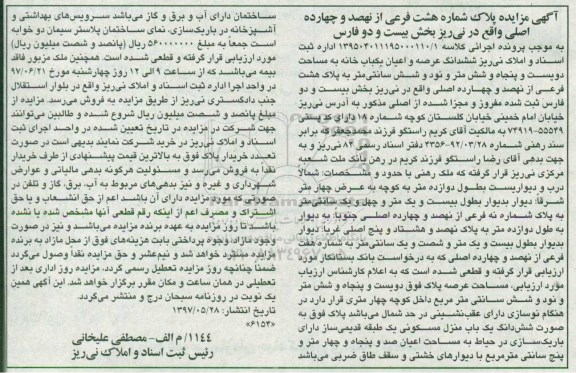 آگهی مزایده پلاک شماره هشت فرعی از نهصد و چهارده
اصلی واقع در نی‌ریز بخش بیست و دو فارس
به موجب پرونده اجرائی کلاسه ۱۳۹۵۰۴۰۱۱۱۹۵۰۰۰۱۱۰/۱ اداره ثبت
اسناد و املاک نی‌ریز ششدانگ عرصه و اعیان یکباب خانه به مساحت
دویست و پنجاه و شش متر و نود و شش سانتی‌متر به پلاک هشت
فرعی از نهصد و چهارده اصلی واقع در نی‌ریز بخش بیست و دو
فارس ثبت شده مفروز و مجزا شده از اصلی مذکور به آدرس نی‌ریز
خیابان امام خمینی خیابان گلستان کوچه شماره ۱۸ دارای کد پستی
۷۴۹۱۹-۵۵۵۴۹ به مالکیت آقای کریم راستکو فرزند محمدجعفر که برابر
سند رهنی شماره ۹۲/۰۳/۲۸-۲۳۵۶ دفتر اسناد رسمی ۸۴ نی‌ریز و به
جهت بدهی آقای رضا راستکو فرزند کریم در رهن بانک ملت شعبه
مرکزی نی‌ریز قرار گرفته که ملک رهنی با حدود و مشخصات: شمالاً
درب و دیواریست بطول دوازده متر به کوچه به عرض چهار متر
شرقاً: دیوار بدیوار بطول بیست و یک متر و چهل و یک سانتی‌متر
به پلاک شماره نه فرعی از نهصد و چهارده اصلی جنوباً: به دیوار
به طول دوازده متر به پلاک نهصد و هشتاد و پنج اصلی غرباً: دیوار
بدیوار بطول بیست و یک متر و شصت و یک سانتی‌متر به شماره هفت
فرعی از نهصد و چهارده اصلی که به درخواست بانک بستانکار مورد
ارزیابی قرار گرفته و قطعی شده است که به اعلام کارشناس ارزیاب
مورد ارزیابی، مساحت عرصه پلاک فوق دویست و پنجاه و شش متر
و نود و شش سانتی متر مربع داخل کوچه چهار متری قرار دارد در
هنگام نوسازی دارای عقب‌نشینی در حد شمال می‌باشد پلاک فوق به
صورت ششدانگ یک باب منزل مسکونی یک طبقه قدیمی‌ساز دارای
باریک‌سازی در حیاط به مساحت اعیان صد و پنجاه و چهار متر و
پنج سانتی مترمربع با دیوارهای خشتی و سقف طاق ضربی می‌باشد
ساختمان دارای آب و برق و گاز می‌باشد سرویس‌های بهداشتی و
آشپزخانه در باریک‌سازی، نمای ساختمان پلاستر سیمان دو خوابه
است جمعاً به مبلغ ۵۶۰۰۰۰۰۰۰ ریال (پانصد و شصت میلیون ریال)
مورد ارزیابی قرار گرفته و قطعی شده است. همچنین ملک مزبور فاقد
بیمه می‌باشد که از ساعت ۹ الی ۱۲ روز چهارشنبه مورخ ۹۷/۰۶/۲۱
در واحد اجرا اداره ثبت اسناد و املاک نی‌ریز واقع در بلوار استقلال
جنب دادگستری نی‌ریز از طریق مزایده به فروش می‌رسد. مزایده از
مبلغ پانصد و شصت میلیون ریال شروع شده و طالبین می‌توانند
جهت شرکت در مزایده در تاریخ تعیین شده در واحد اجرای ثبت
اسناد و املاک نی‌ریز در خرید شرکت نمایند بدیهی است در صورت
تعدد خریدار پلاک فوق به بالاترین قیمت پیشنهادی از طرف خریدار
نقداً به فروش می‌رسد و مسئولیت هرگونه بدهی مالیاتی و عوارض
شهرداری و غیره و نیز بدهی‌های مربوط به آب، برق، گاز و تلفن در
صورتی که مورد مزایده دارای آن باشد اعم از حق انشعاب و یا حق
اشتراک و مصرف اعم از اینکه رقم قطعی آنها مشخص شده یا نشده
باشد تا روز مزایده به عهده برنده مزایده می‌باشد و نیز در صورت
وجود مازاد وجوه پرداختی بابت هزینه‌های فوق از محل مازاد به برنده
مزایده مسترد خواهد شد و نیم‌عشر و حق مزایده نقداً وصول می‌گردد
ضمناً چنانچه روز مزایده تعطیل رسمی گردد. مزایده روز اداری بعد از
تعطیلی در همان ساعت و مکان مقرر برگزار خواهد شد. این آگهی همین
یک نوبت در روزنامه سبحان درج و منتشر می‌گردد.
تاریخ انتشار: ۱۳۹۷/۰۵/۲۸
«۶۱۵۴»
۱۱۴۴/م الف- مصطفی علیخانی
رئیس ثبت اسناد و املاک نی‌ریز